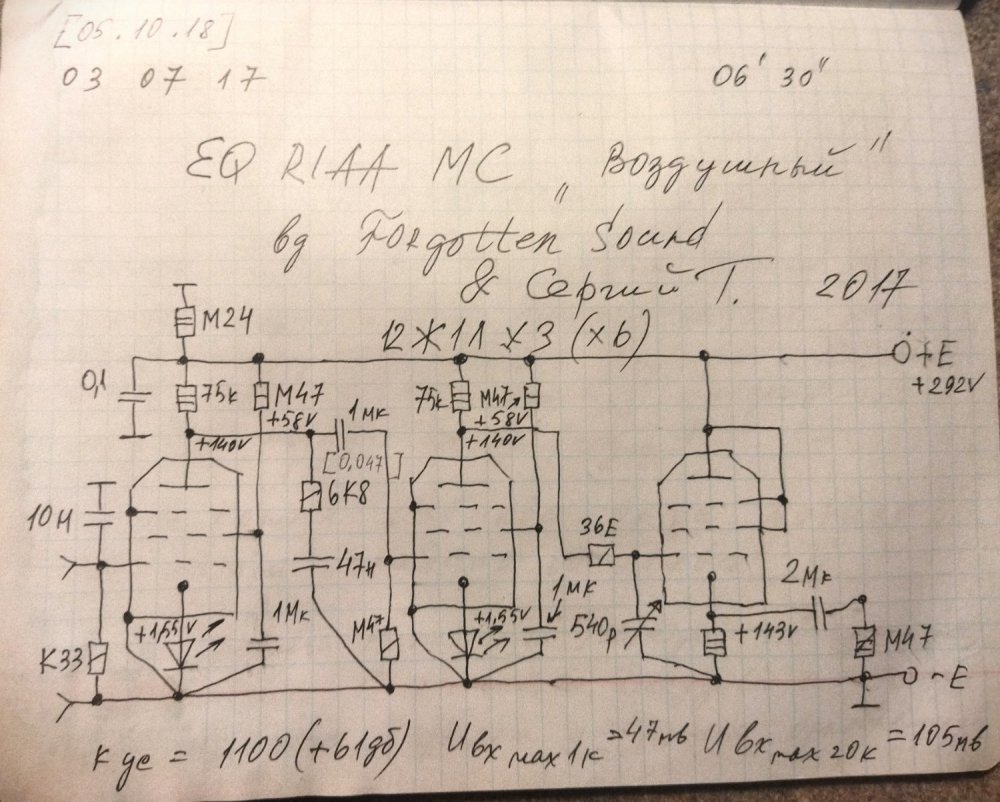 [05.10.18]
03 07 17
06' 30"
EQ RIAA MC „Воздушный"
by Forgotten Sound
& Сергий Т. 2017
12Ж1Л х 3 (х6)
М24
0,1
75к
М47
+58v
+140v
1мк
[0,047]
6К8
47н
10н
К33
+1,55v
1Мк
75к
М47
+58v
+140v
М47
+1,55v
1мк
36Е
540р
+143v
2Мк
М47
О+Е
+292v
О-Е
К ус = 1100 (+61дб) Uвх max 1к = 47mв Uвх max 20к = 105mв